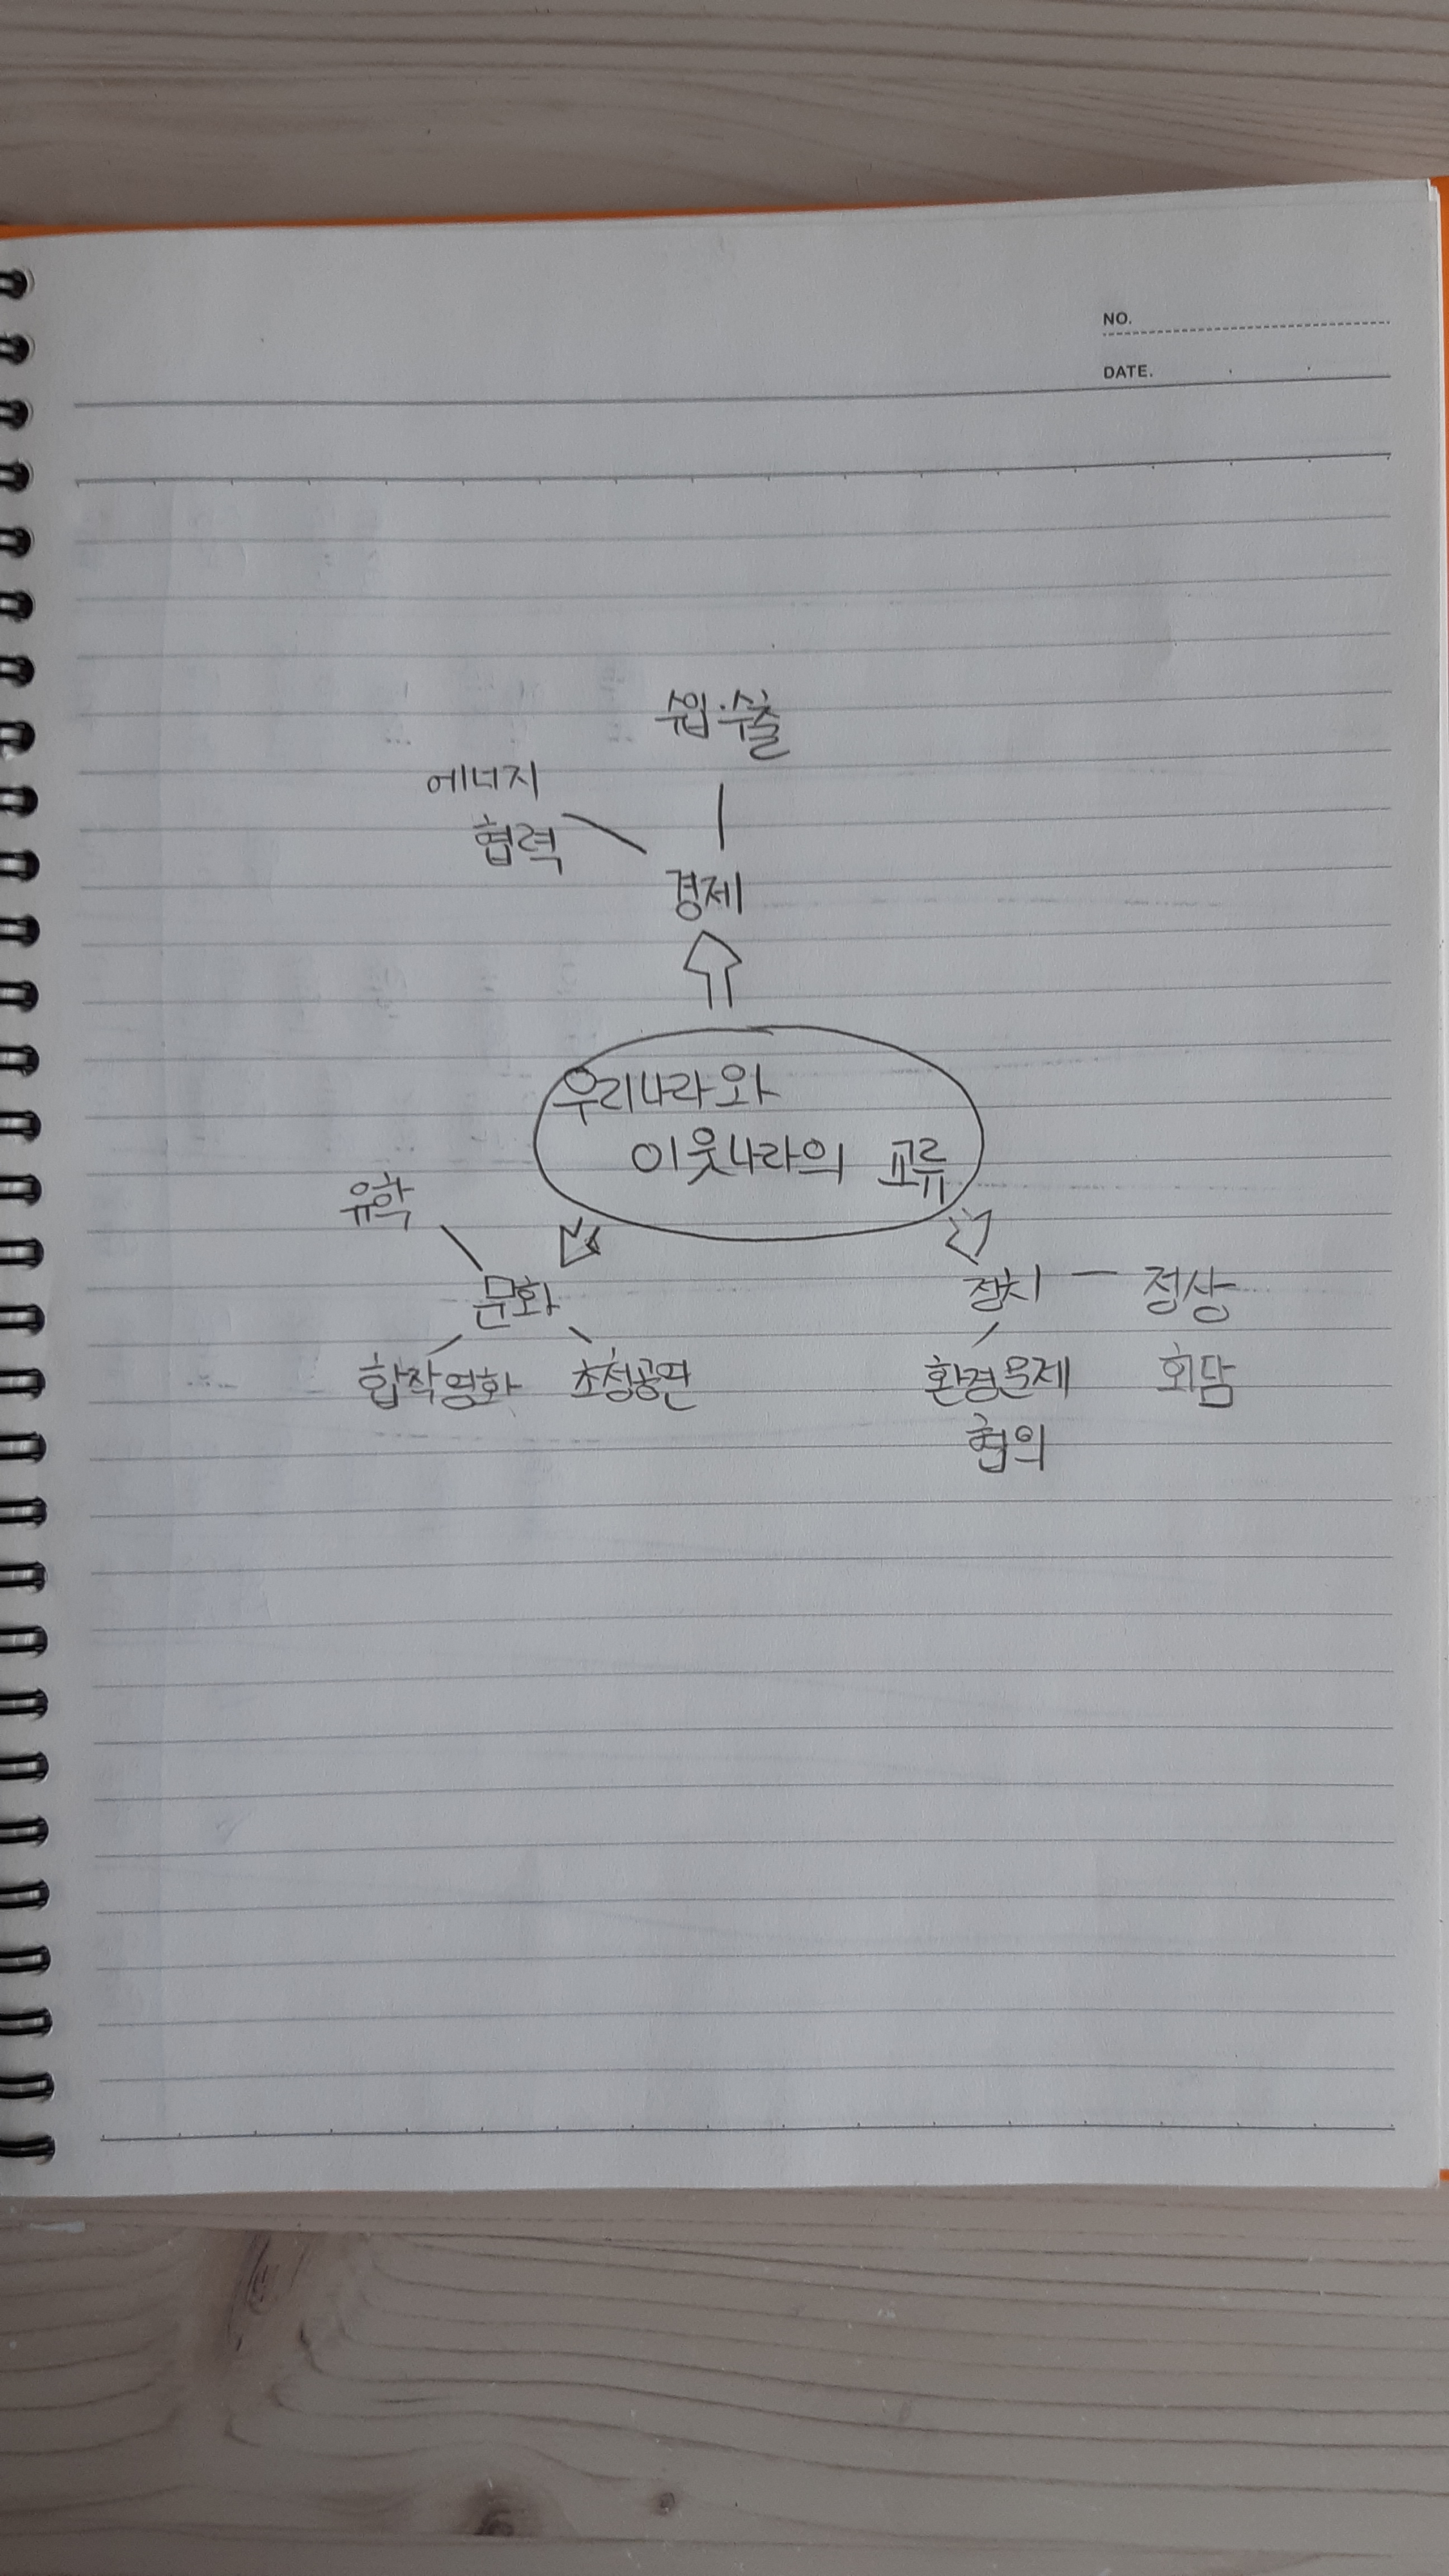 NO.
DATE.
수입·수출
에너지
협력
경제
우리나라와
이웃나라의 교류
유학
문화
정치 - 정상
합작영화 초청공연
환경문제 회담
협의